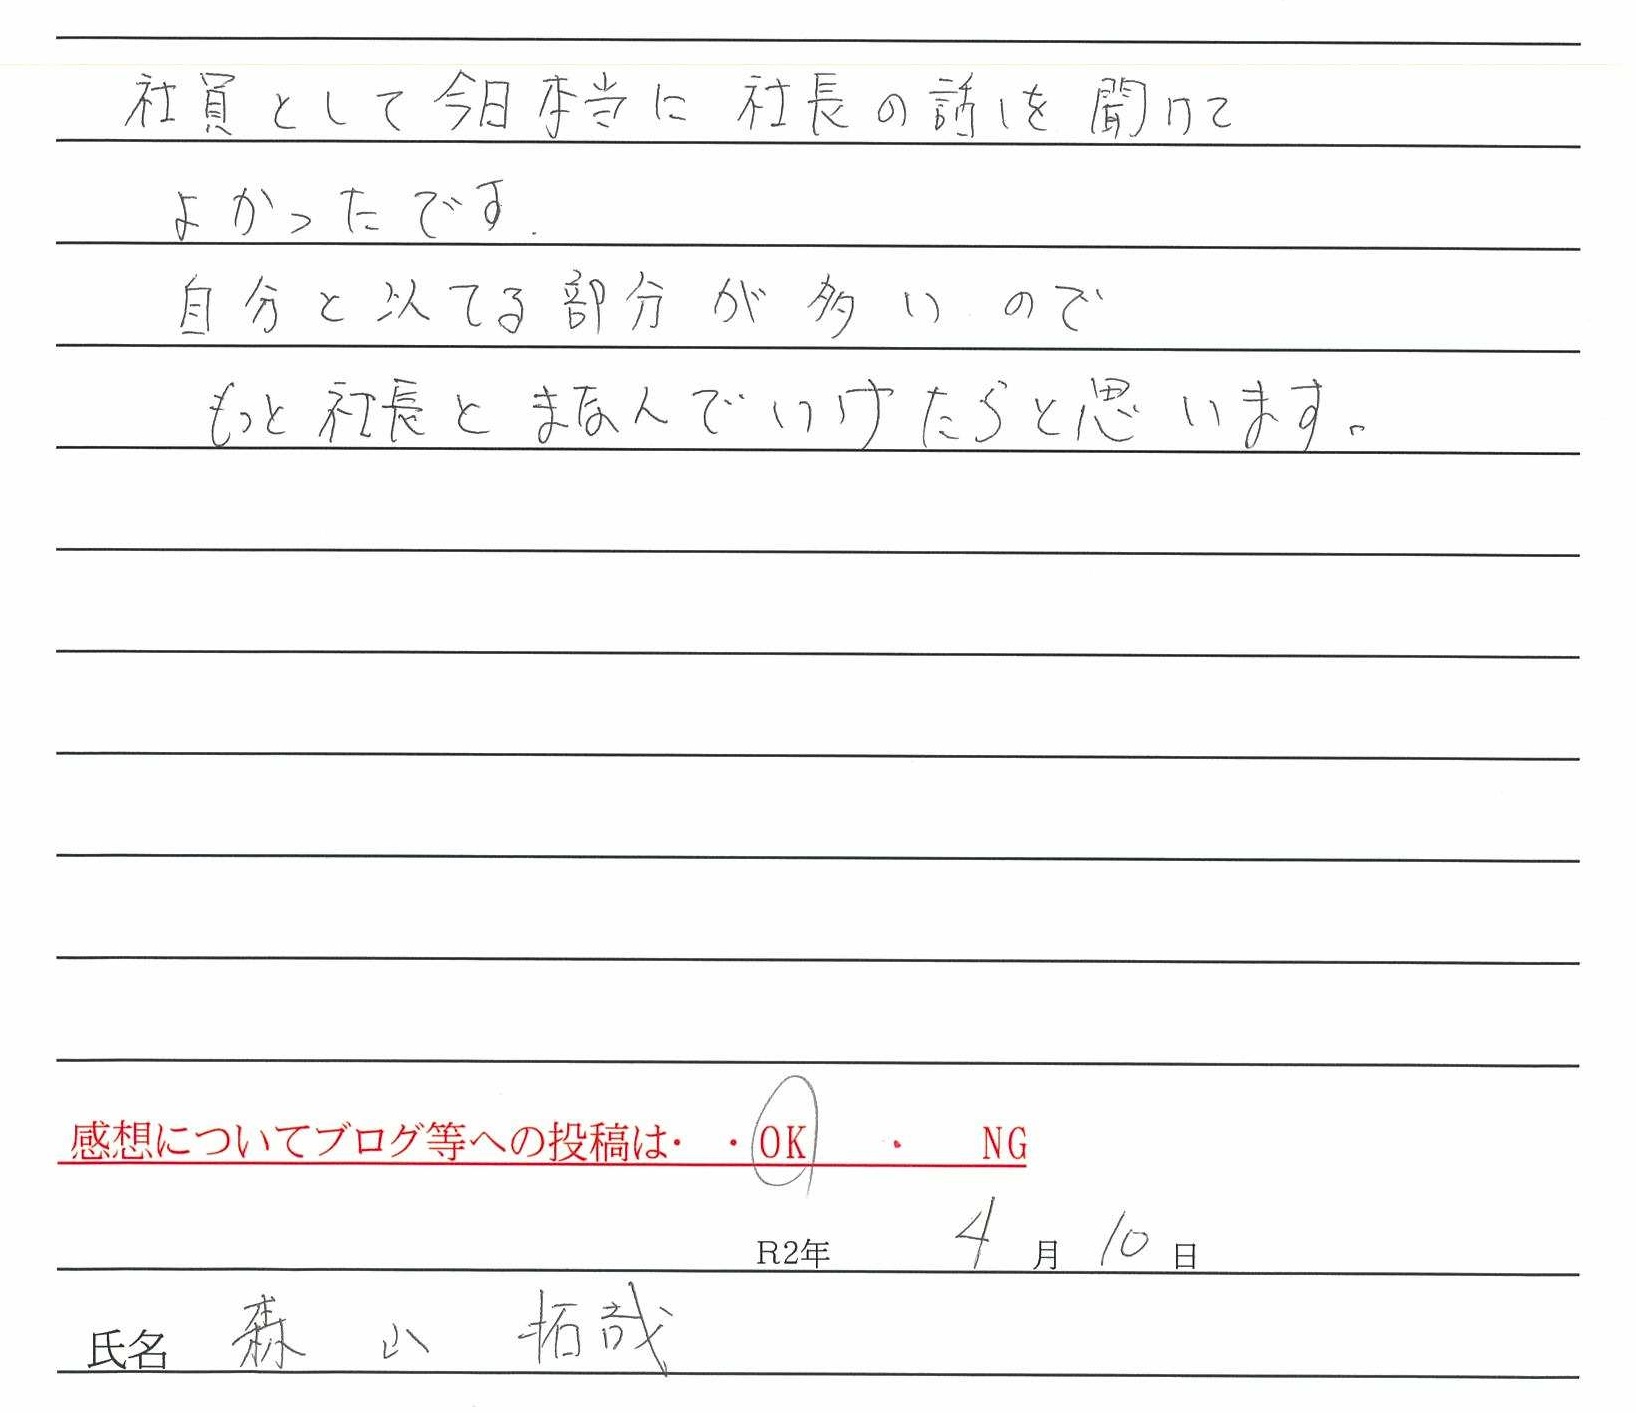 社員として今日本当に 社長の話しを聞けて
よかったです.
自分と以てる部分が多いので
もっと社長とまなんでいけたらと思います。
感想についてブログ等への投稿は・・OK ・ NG
R2年 4月 10日
氏名 森山 拓哉